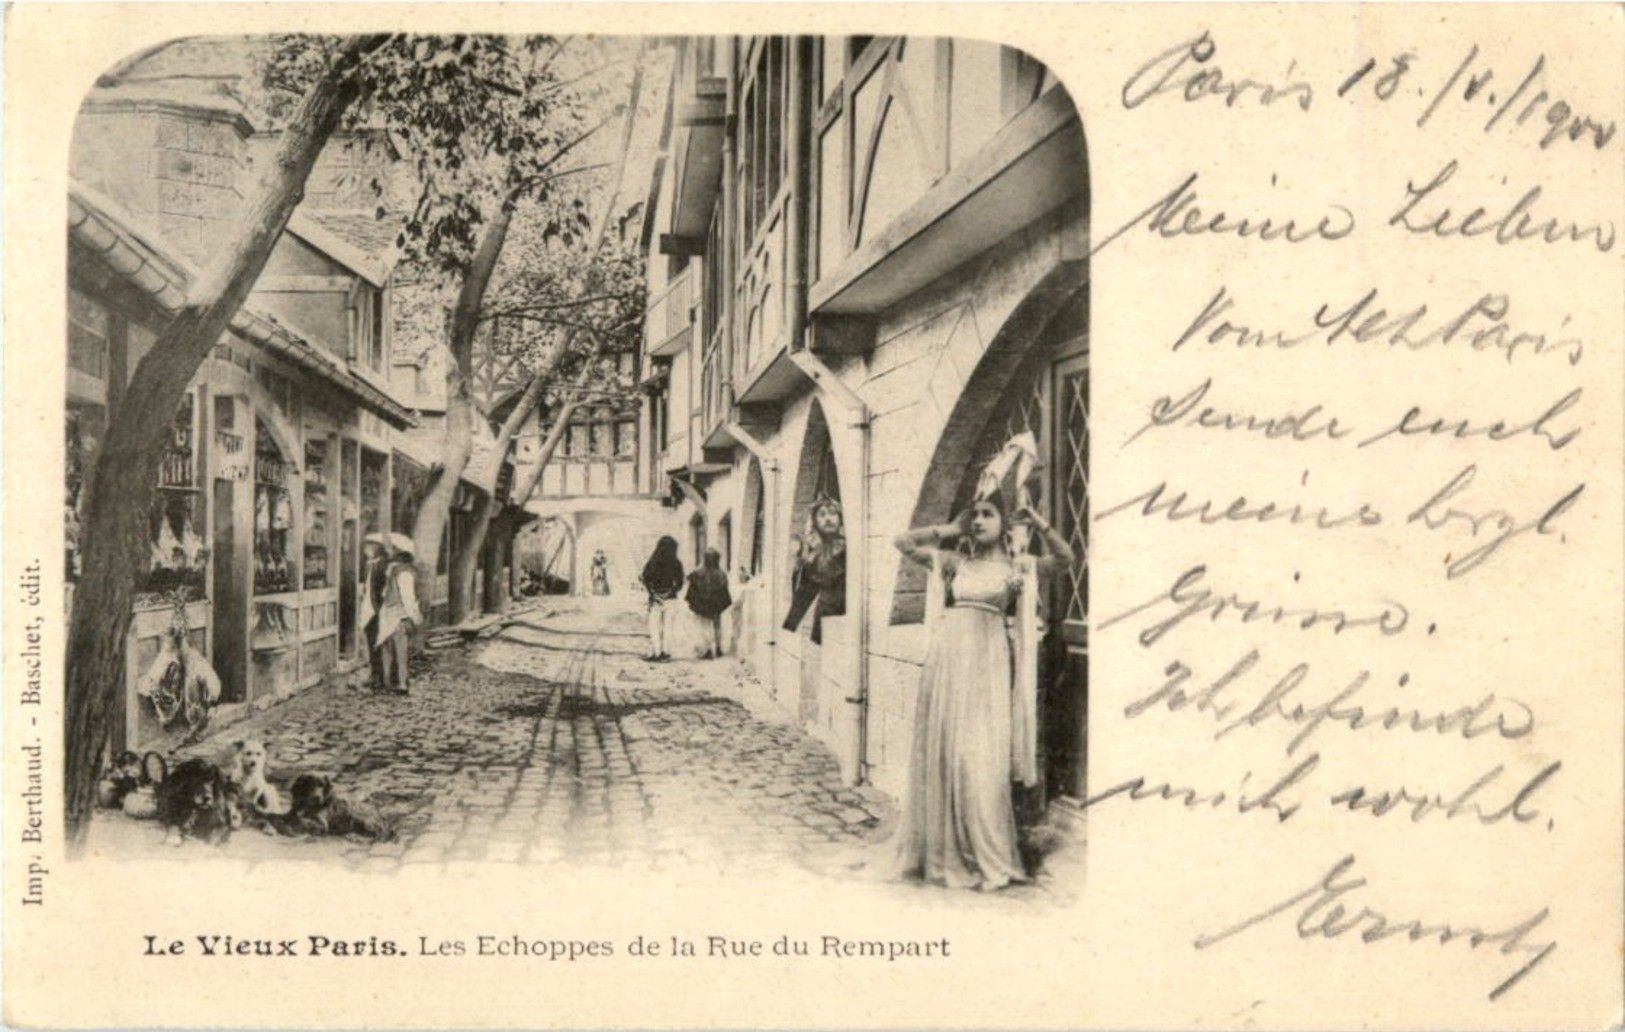 Paris 18./X./1900
Meine Lieben
Vom Alt Paris
sende euch
meine hrzl.
Grüsse.
Ich befinde
mich wohl.
Ernst
Imp. Berthaud. - Baschet, édit.
Le Vieux Paris. Les Echoppes de la Rue du Rempart